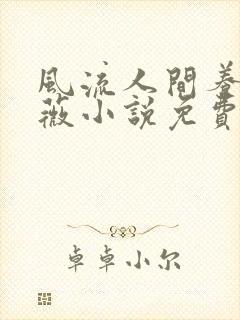 風流人間養
薇小說免費
卓卓小尔